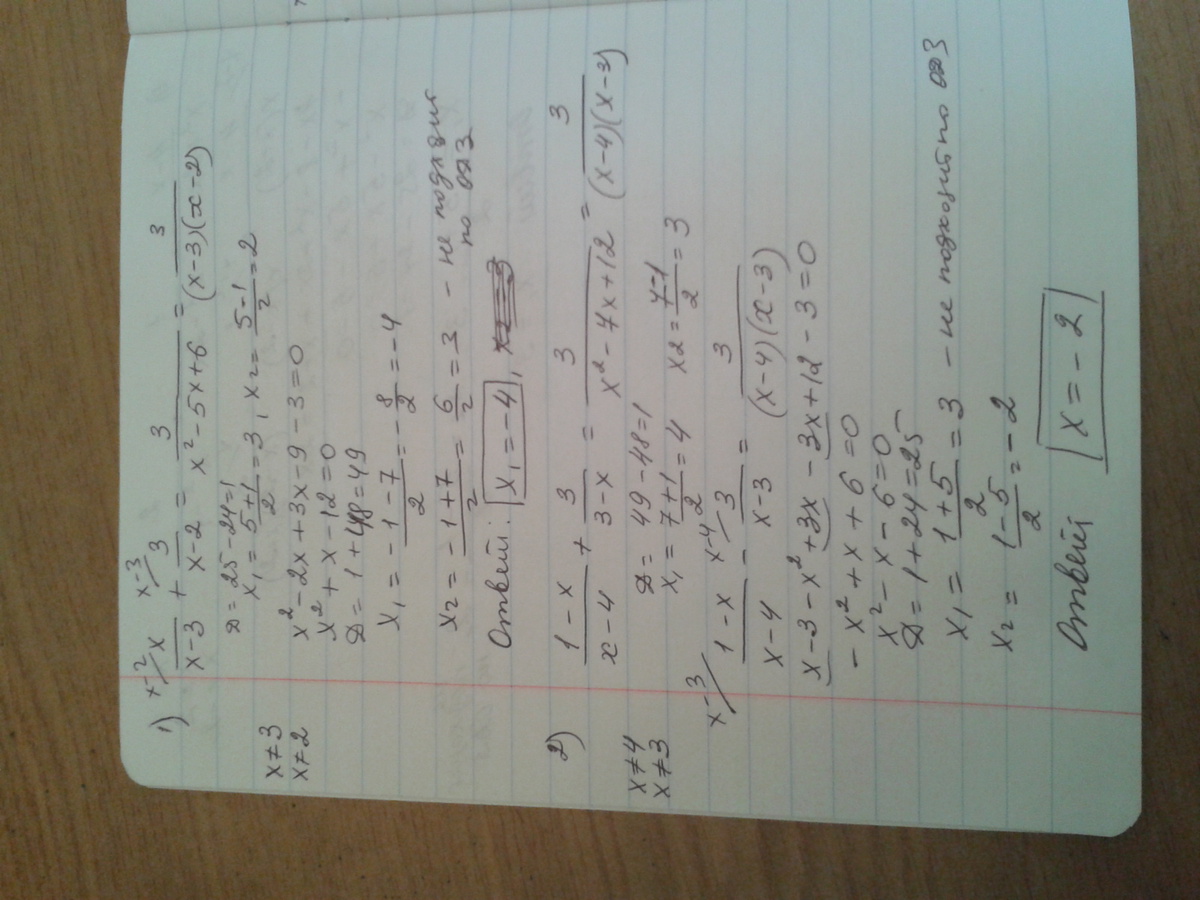 1) x-2/ x/(x-3) + x-3/ 3/(x-2) = 3/(x²-5x+6) = 3/((x-3)(x-2))
D = 25-24=1
x≠3 x₁ = (5+1)/2 = 3, x₂ = (5-1)/2 = 2
x≠2 x²-2x+3x-9-3=0
x²+x-12=0
D = 1+48=49
x₁ = (-1-7)/2 = -8/2 = -4
x₂ = (-1+7)/2 = 6/2 = 3 - не подходит
по ОДЗ
Ответ: x₁ = -4,
2) (1-x)/(x-4) + 3/(3-x) = 3/(x²-7x+12) = 3/((x-4)(x-3))
x≠4 D = 49-48=1
x≠3 x₁ = (7+1)/2 = 4 x2 = (7-1)/2 = 3
x-3/ (1-x)/(x-4) - x-4/ 3/(x-3) = 3/((x-4)(x-3))
x-3-x²+3x-3x+12-3=0
-x²+x+6=0
x²-x-6=0
D = 1+24=25
x₁ = (1+5)/2 = 3 - не подходит по ОДЗ
x₂ = (1-5)/2 = -2
Ответ x = -2